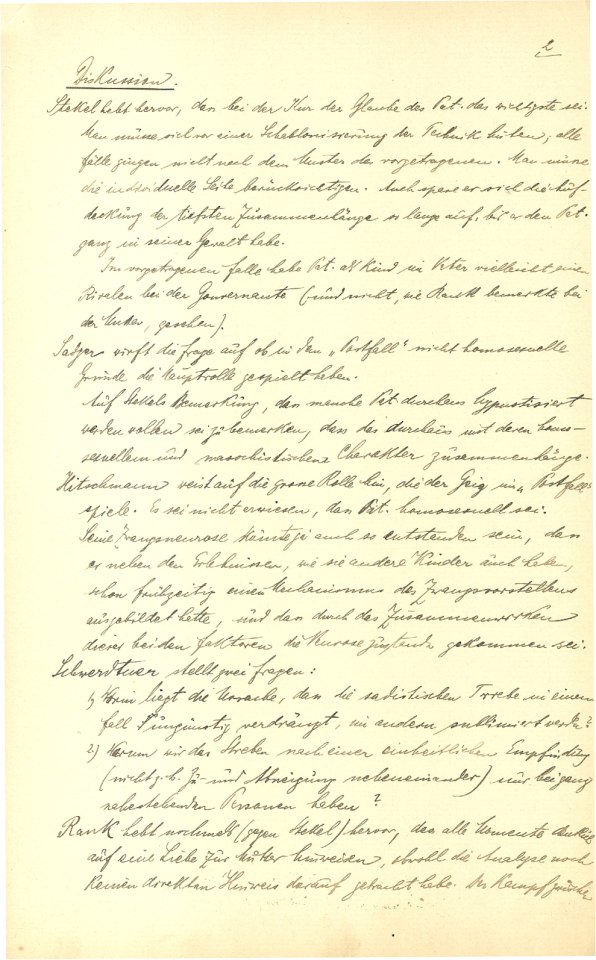 2
Diskussion.
Stekel hebt hervor, dass bei der Kur der Glaube des Pat. das wichtigste sei.
Man müsse sich vor einer Schablonisierung der Technik hüten; alle
Fälle gingen nicht nach dem Muster des vorgetragenen. Man müsse
die individuelle Seite berücksichtigen. Auch spare er sich die Auf-
deckung der tiefsten Zusammenhänge so lange auf, bis er den Pat.
ganz in seiner Gewalt habe.
Im vorgetragenen Falle habe Pat. als Kind im Vater vielleicht einen
Rivalen bei der Gouvernante (und nicht, wie Rank bemerkte bei
der Mutter, gesehen).
Sadger wirft die Frage auf ob in dem „Postfall" nicht homosexuelle
Gründe die Hauptrolle gespielt haben.
Auf Stekels Bemerkung, dass manche Pat. durchaus hypnotisiert
werden wollen sei zu bemerken, dass das durchaus mit deren homo-
sexuellem und masochistischen Charakter zusammenhänge.
Hitschmann weist auf die grosse Rolle hin, die der Geiz im „Postfall"
spiele. Es sei nicht erwiesen, dass Pat. homosexuell sei.
Seine Zwangsneurose könnte ja auch so entstanden sein, dass
er neben den Erlebnissen, wie sie andere Kinder auch haben,
schon frühzeitig einen Mechanismus des Zwangsvorstellens
ausgebildet hätte, und dass durch das Zusammenwirken
dieser beiden Faktoren die Neurose zustande gekommen sei.
Schwerdtner stellt zwei Fragen:
1) Worin liegt die Ursache, dass die sadistischen Triebe in einem
Fall ungünstig verdrängt, im andern sublimiert werden?
2) Warum wir das Streben nach einer einheitlichen Empfindung
(nicht z. B. Zu- und Abneigung nebeneinander) nur bei ganz
nahestehenden Personen haben?
Rank hebt nochmals (gegen Stekel) hervor, dass alle Momente
auf eine Liebe zur Mutter hinweisen, obwohl die Analyse noch
keinen direkten Hinweis darauf gebracht habe. Der Kampf zwischen